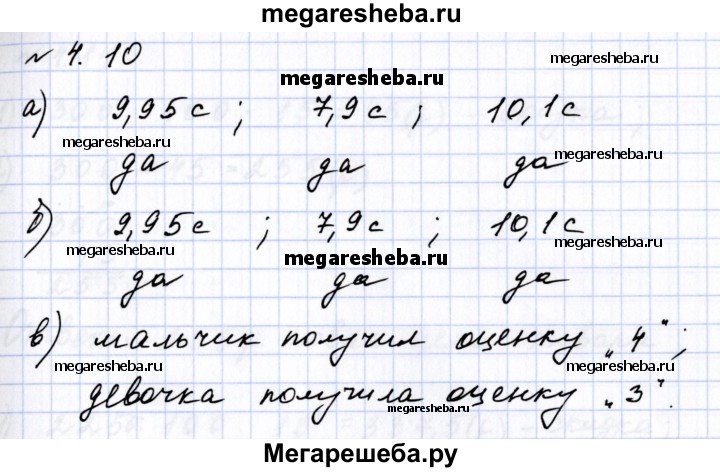 megaresheba.ru
№ 4.10
megaresheba.ru
а) 9,95с ; 7,9с ; 10,1с
megaresheba.ru megaresheba.ru
да да да
megaresheba.ru
б) 9,95с ; 7,9с ; 10,1с
megaresheba.ru megaresheba.ru
megaresheba.ru
да да да
в) мальчик получил оценку „4";
megaresheba.ru megaresheba.ru
девочка получила оценку „3".
megaresheba.ru megaresheba.ru
Мегарешеба.ру